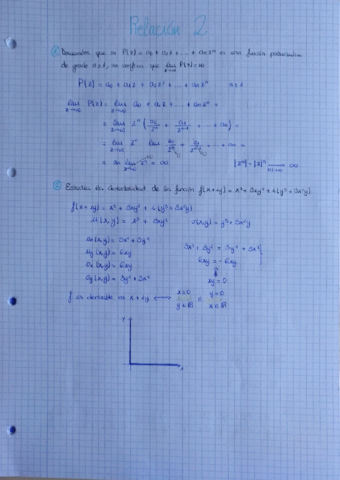 Relación 2
① Demuestra que si P(z) = a₀ + a₁z + ... + aₙzⁿ es una función polinómica
de grado n≥1, se verifica que lim z→∞ P(z) = ∞
P(z) = a₀ + a₁z + a₂z² + ... + aₙzⁿ n≥1
lim z→∞ P(z) = lim z→∞ a₀ + a₁z + ... + aₙzⁿ =
= lim z→∞ zⁿ (a₀/zⁿ + a₁/zⁿ⁻¹ + ... + aₙ) =
= lim z→∞ zⁿ lim z→∞ a₀/zⁿ + a₁/zⁿ⁻¹ + ... + aₙ =
= aₙ lim z→∞ zⁿ = ∞ |zⁿ| = |z|ⁿ → ∞
② Estudiar la derivabilidad de la función f(x+iy) = x³ + 3xy² + i(y³ + 3x²y)
f(x+iy) = x³ + 3xy² + i(y³ + 3x²y)
u(x,y) = x³ + 3xy² v(x,y) = y³ + 3x²y
uₓ(x,y) = 3x² + 3y²
u_y(x,y) = 6xy
vₓ(x,y) = 6xy
v_y(x,y) = 3y² + 3x²
3x² + 3y² = 3y² + 3x²
6xy = -6xy
xy = 0
f es derivable en x+iy ⟷ x=0 y∈ℝ o y=0 x∈ℝ